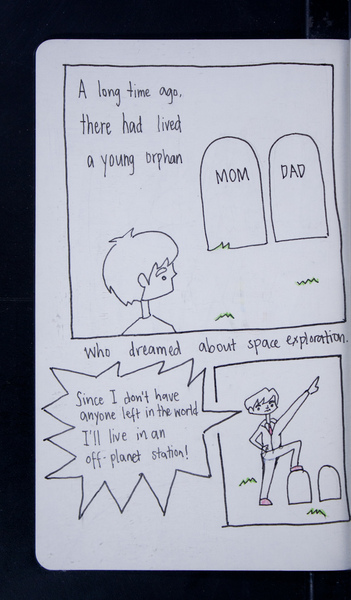 A long time ago,
there had lived
a young orphan
MOM
DAD
who dreamed about space exploration.
Since I don't have
anyone left in the world
I'll live in an
off-planet station!